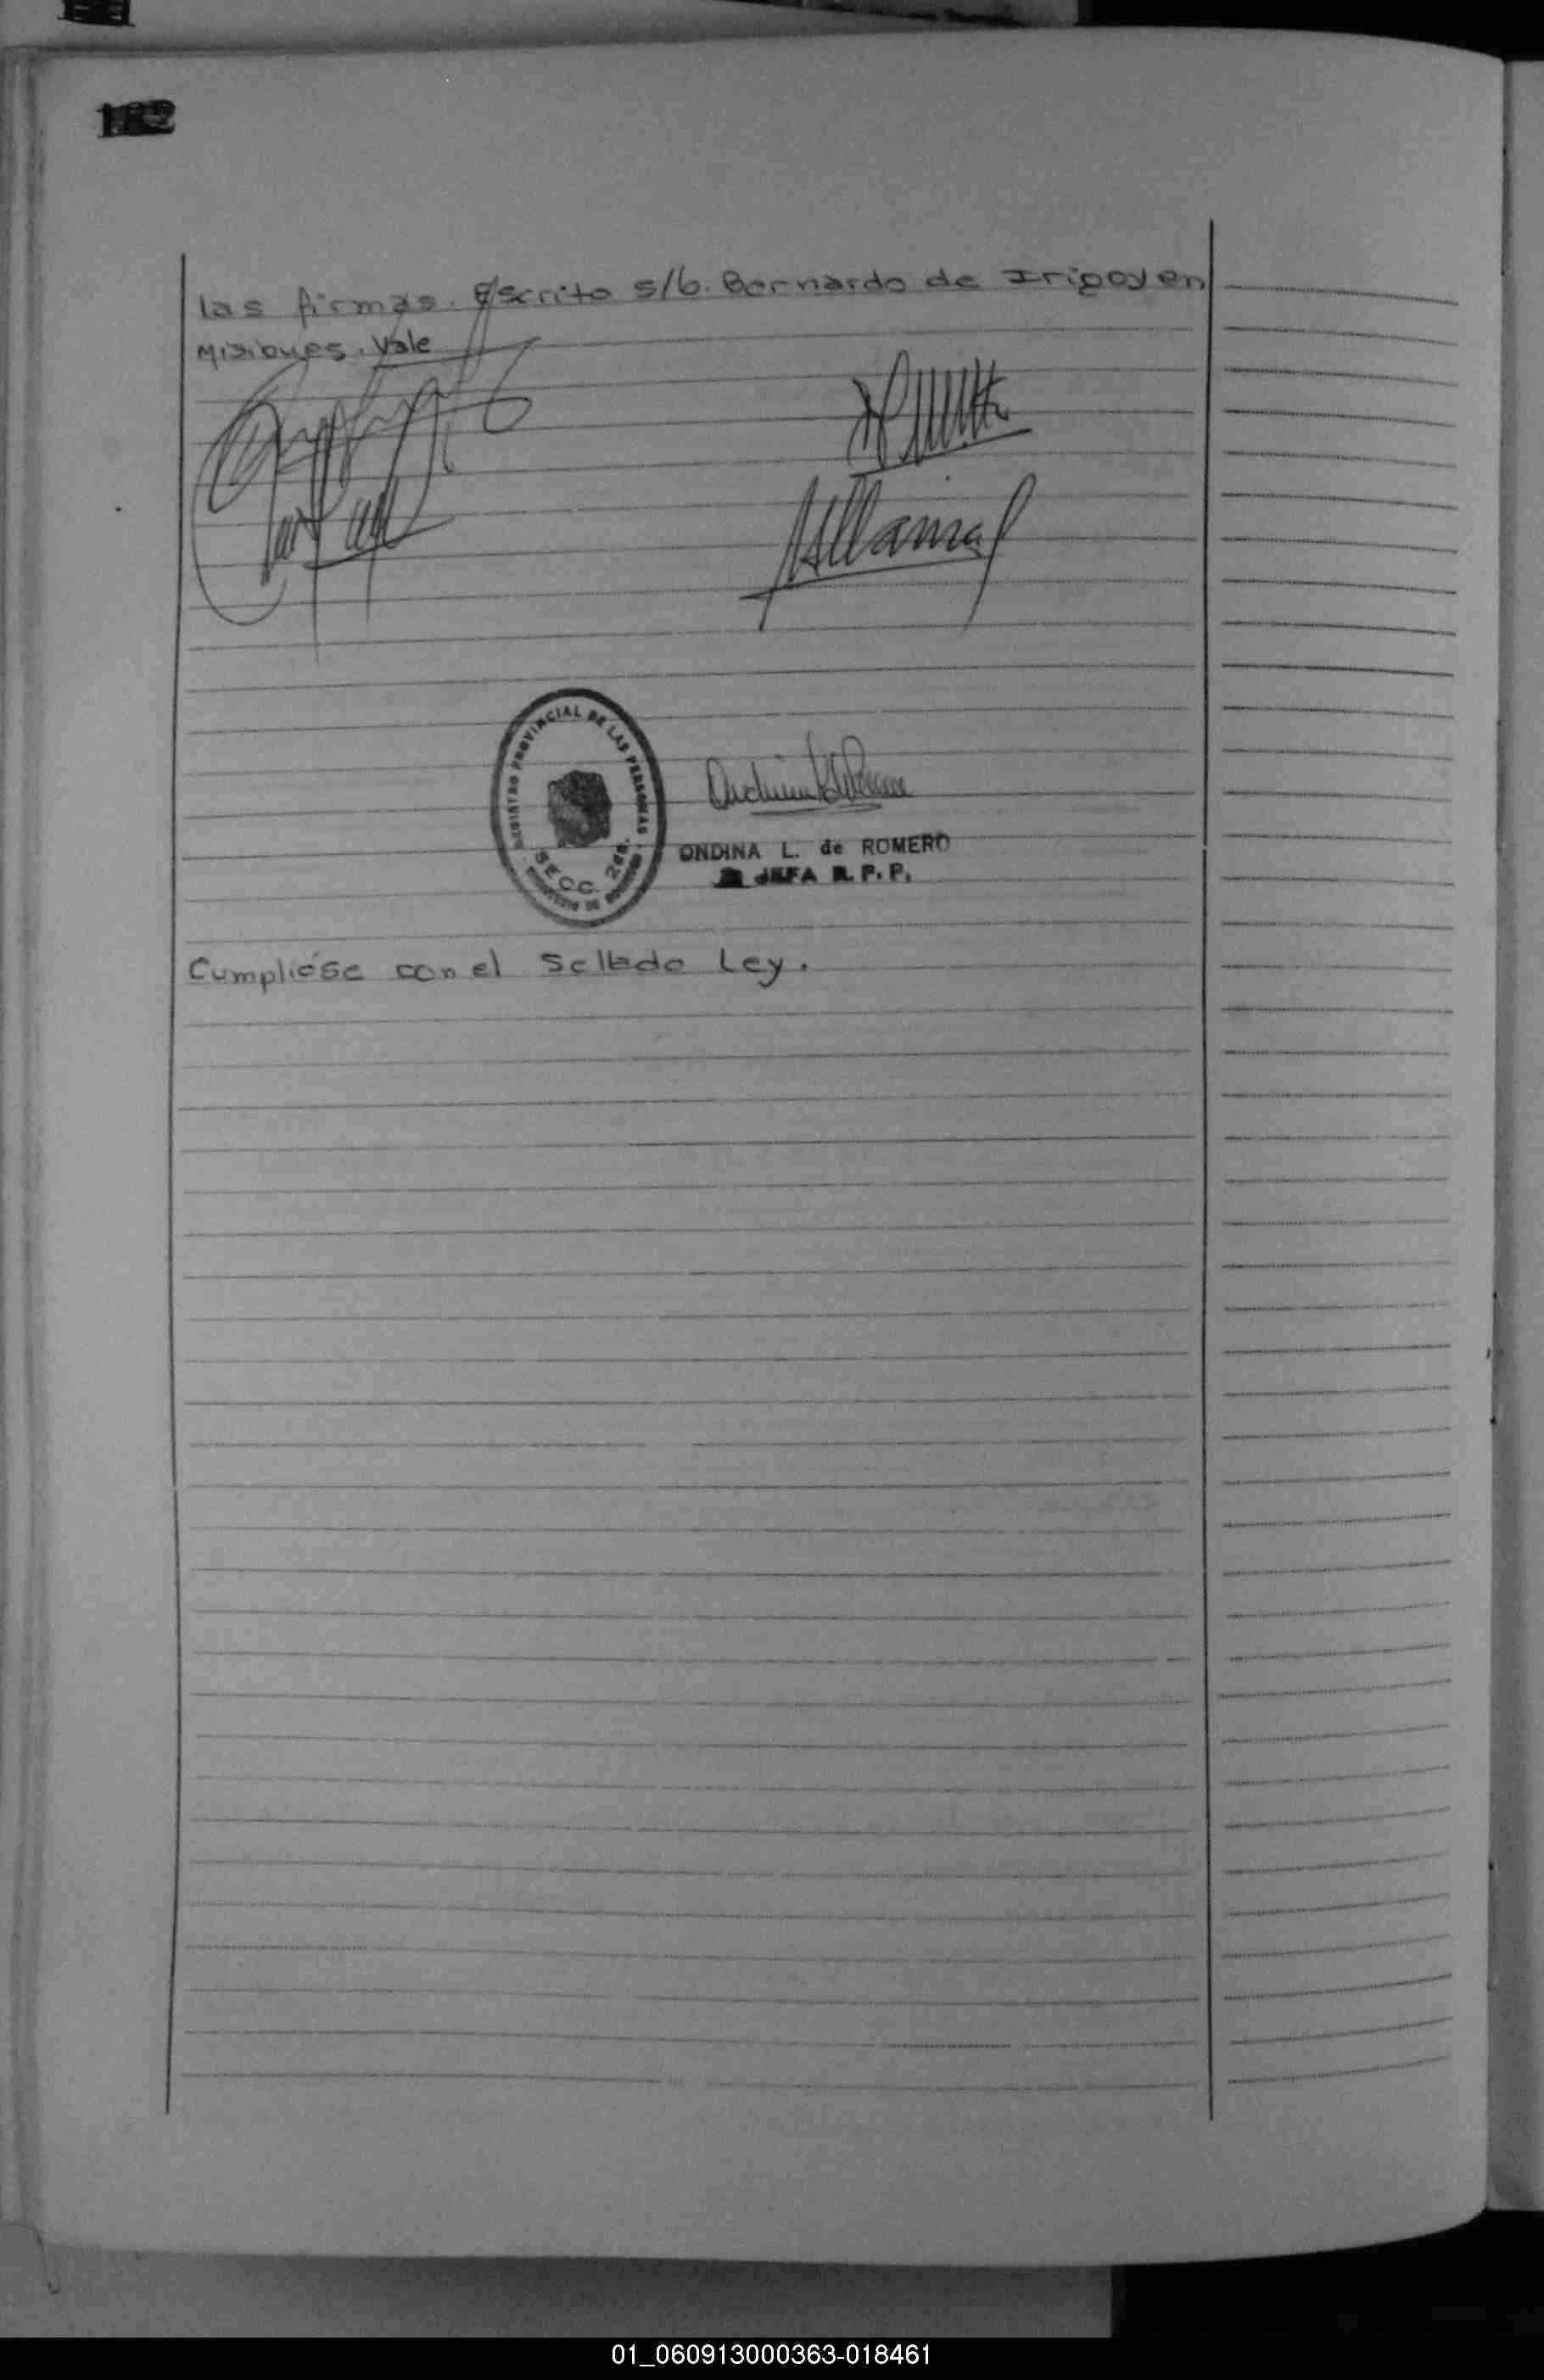 las firmas. Escrito s/b. Bernardo de Irigoyen
Misiones. Vale
REGISTRO PROVINCIAL DE LAS PERSONAS
SECC. 2da.
ONDINA L. de ROMERO
JEFA R. P. P.
Cumplióse con el Sellado Ley.
01_060913000363-018461